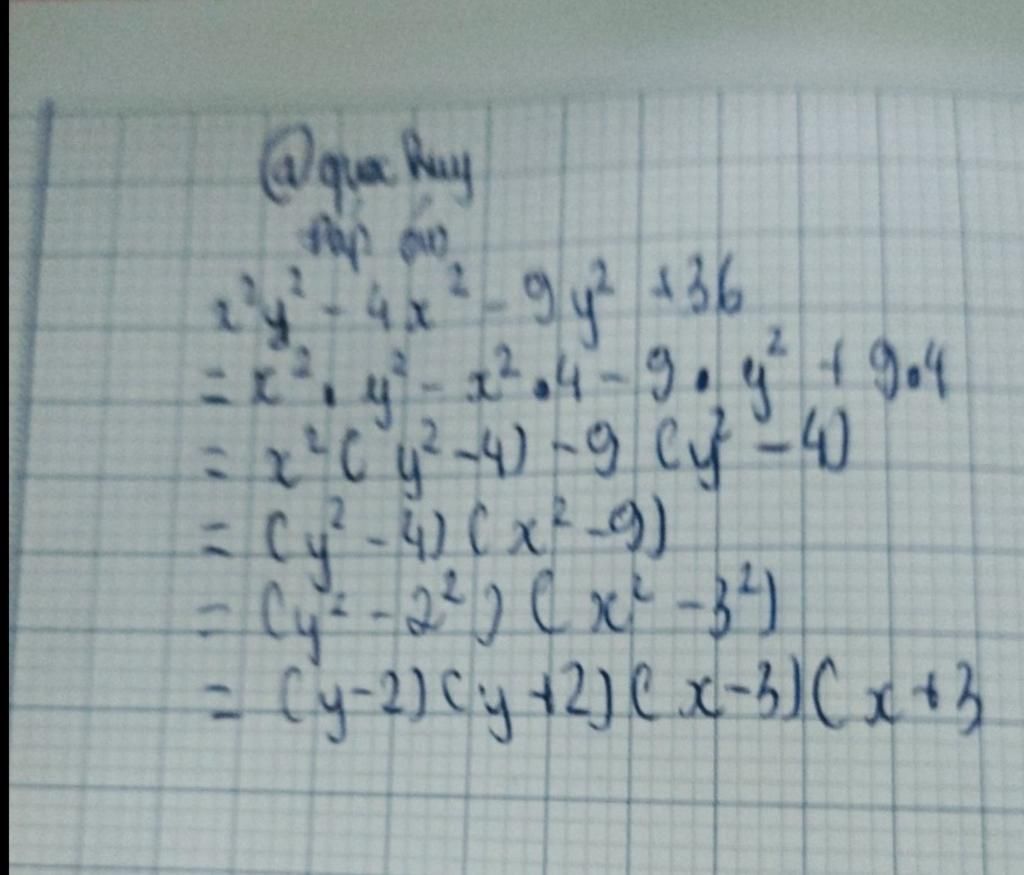 Đáp án
x²y² - 4x² - 9y² + 36
= x² . y² - x² . 4 - 9 . y² + 9 . 4
= x² ( y² - 4) - 9 (y² - 4)
= (y² - 4) ( x² - 9)
= (y² - 2²) ( x² - 3²)
= (y - 2) (y + 2) ( x - 3) ( x + 3